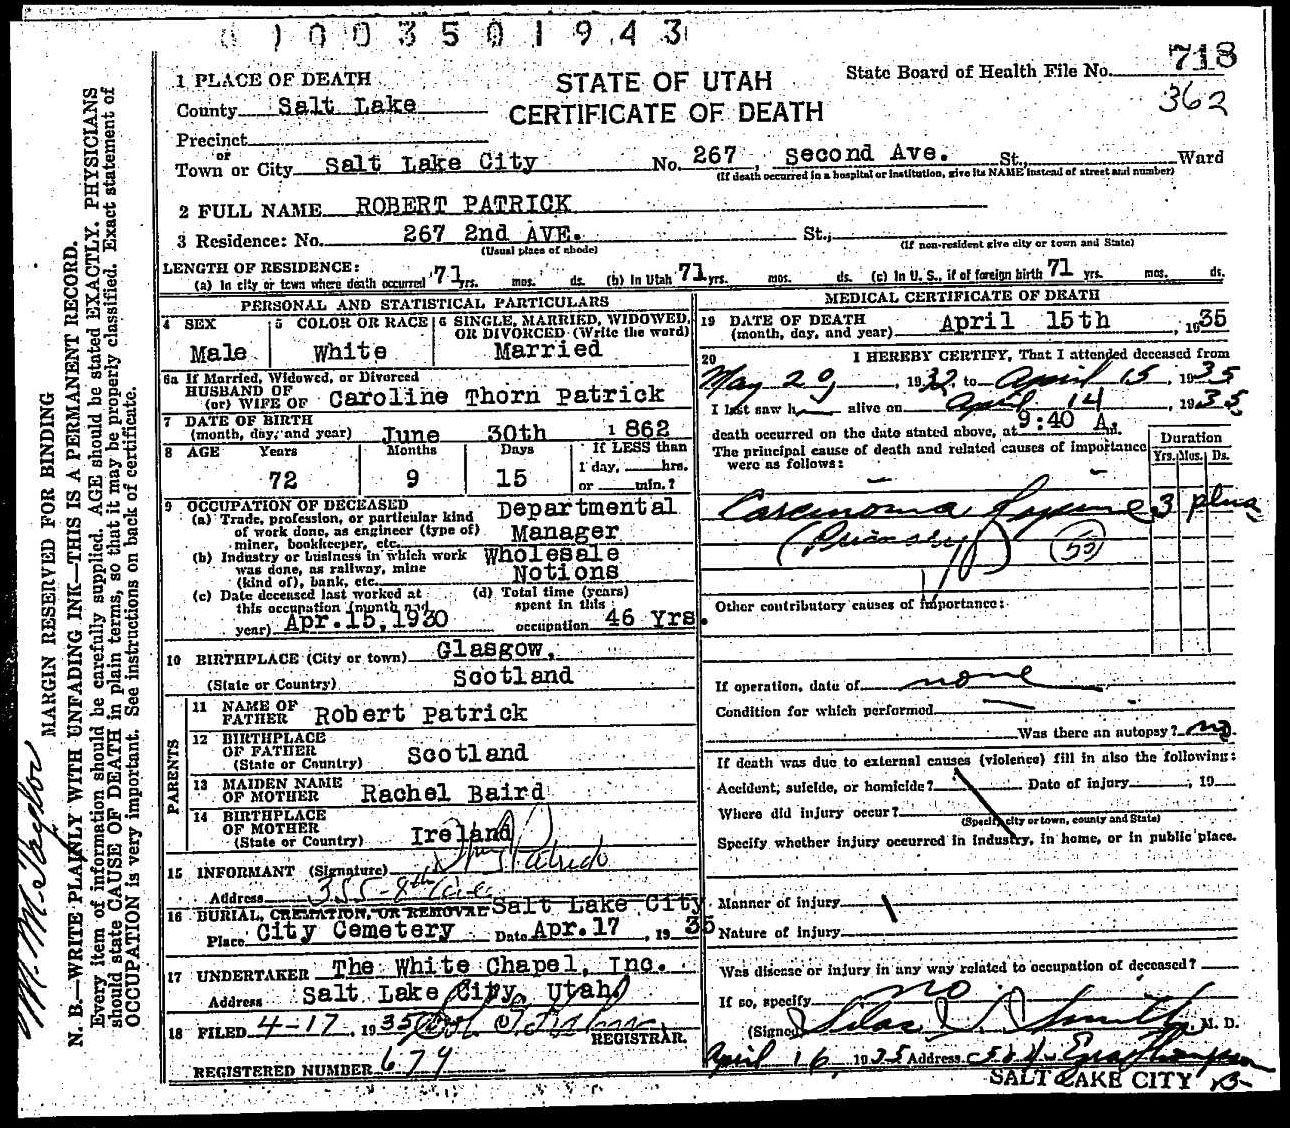 003501943
State Board of Health File No. 718
362
STATE OF UTAH
CERTIFICATE OF DEATH
1 PLACE OF DEATH
County Salt Lake
Precinct
or
Town or City Salt Lake City No. 267, Second Ave. St., Ward
(If death occurred in a hospital or institution, give its NAME instead of street and number)
2 FULL NAME ROBERT PATRICK
3 Residence: No. 267 2nd AVE. St.,
(Usual place of abode) (If non-resident give city or town and State)
LENGTH OF RESIDENCE:
(a) In city or town where death occurred 71 yrs. mos. ds. (b) In Utah 71 yrs. mos. ds. (c) In U. S., if of foreign birth 71 yrs. mos. ds.
PERSONAL AND STATISTICAL PARTICULARS
4 SEX
Male
5 COLOR OR RACE
White
6 SINGLE, MARRIED, WIDOWED, OR DIVORCED (Write the word)
Married
6a If Married, Widowed, or Divorced
HUSBAND OF
(or) WIFE OF Caroline Thorn Patrick
7 DATE OF BIRTH
(month, day, and year) June 30th 1862
8 AGE Years Months Days If LESS than
1 day, hrs.
72 9 15 or min.?
9 OCCUPATION OF DECEASED
(a) Trade, profession, or particular kind
of work done, as engineer (type of)
miner, bookkeeper, etc. Departmental
Manager
(b) Industry or business in which work
was done, as railway, mine
(kind of), bank, etc. Wholesale
Notions
(c) Date deceased last worked at
this occupation (month and
year) Apr.15,1930
(d) Total time (years)
spent in this
occupation 46 Yrs.
10 BIRTHPLACE (City or town) Glasgow,
(State or Country) Scotland
PARENTS
11 NAME OF
FATHER Robert Patrick
12 BIRTHPLACE
OF FATHER
(State or Country) Scotland
13 MAIDEN NAME
OF MOTHER Rachel Baird
14 BIRTHPLACE
OF MOTHER
(State or Country) Ireland
15 INFORMANT (Signature)
Address 355-8th Ave
16 BURIAL, CREMATION, OR REMOVAL Salt Lake City
Place City Cemetery Date Apr.17, 1935
17 UNDERTAKER The White Chapel, Inc.
Address Salt Lake City, Utah
18 FILED 4-17, 1935
REGISTRAR.
REGISTERED NUMBER 679
MEDICAL CERTIFICATE OF DEATH
19 DATE OF DEATH
(month, day, and year) April 15th, 1935
20 I HEREBY CERTIFY, That I attended deceased from
May 29, 1932, to April 15, 1935
I last saw h alive on April 14, 1935,
death occurred on the date stated above, at 9:40 A.
The principal cause of death and related causes of importance
were as follows:
Duration
Yrs. Mos. Ds.
Carcinoma 3 plus
(Primary) (53)
Other contributory causes of importance:
If operation, date of none
Condition for which performed
Was there an autopsy? no.
If death was due to external causes (violence) fill in also the following:
Accident, suicide, or homicide? Date of injury, 19
Where did injury occur?
(Specify city or town, county and State)
Specify whether injury occurred in industry, in home, or in public place.
Manner of injury
Nature of injury
Was disease or injury in any way related to occupation of deceased?
If so, specify no
(Signed) Silas S. Smith M. D.
April 16, 1935 Address Ezra Thompson
SALT LAKE CITY
MARGIN RESERVED FOR BINDING
N. B.—WRITE PLAINLY WITH UNFADING INK—THIS IS A PERMANENT RECORD.
Every item of information should be carefully supplied. AGE should be stated EXACTLY. PHYSICIANS
should state CAUSE OF DEATH in plain terms, so that it may be properly classified. Exact statement of
OCCUPATION is very important. See instructions on back of certificate.
M. M. Taylor